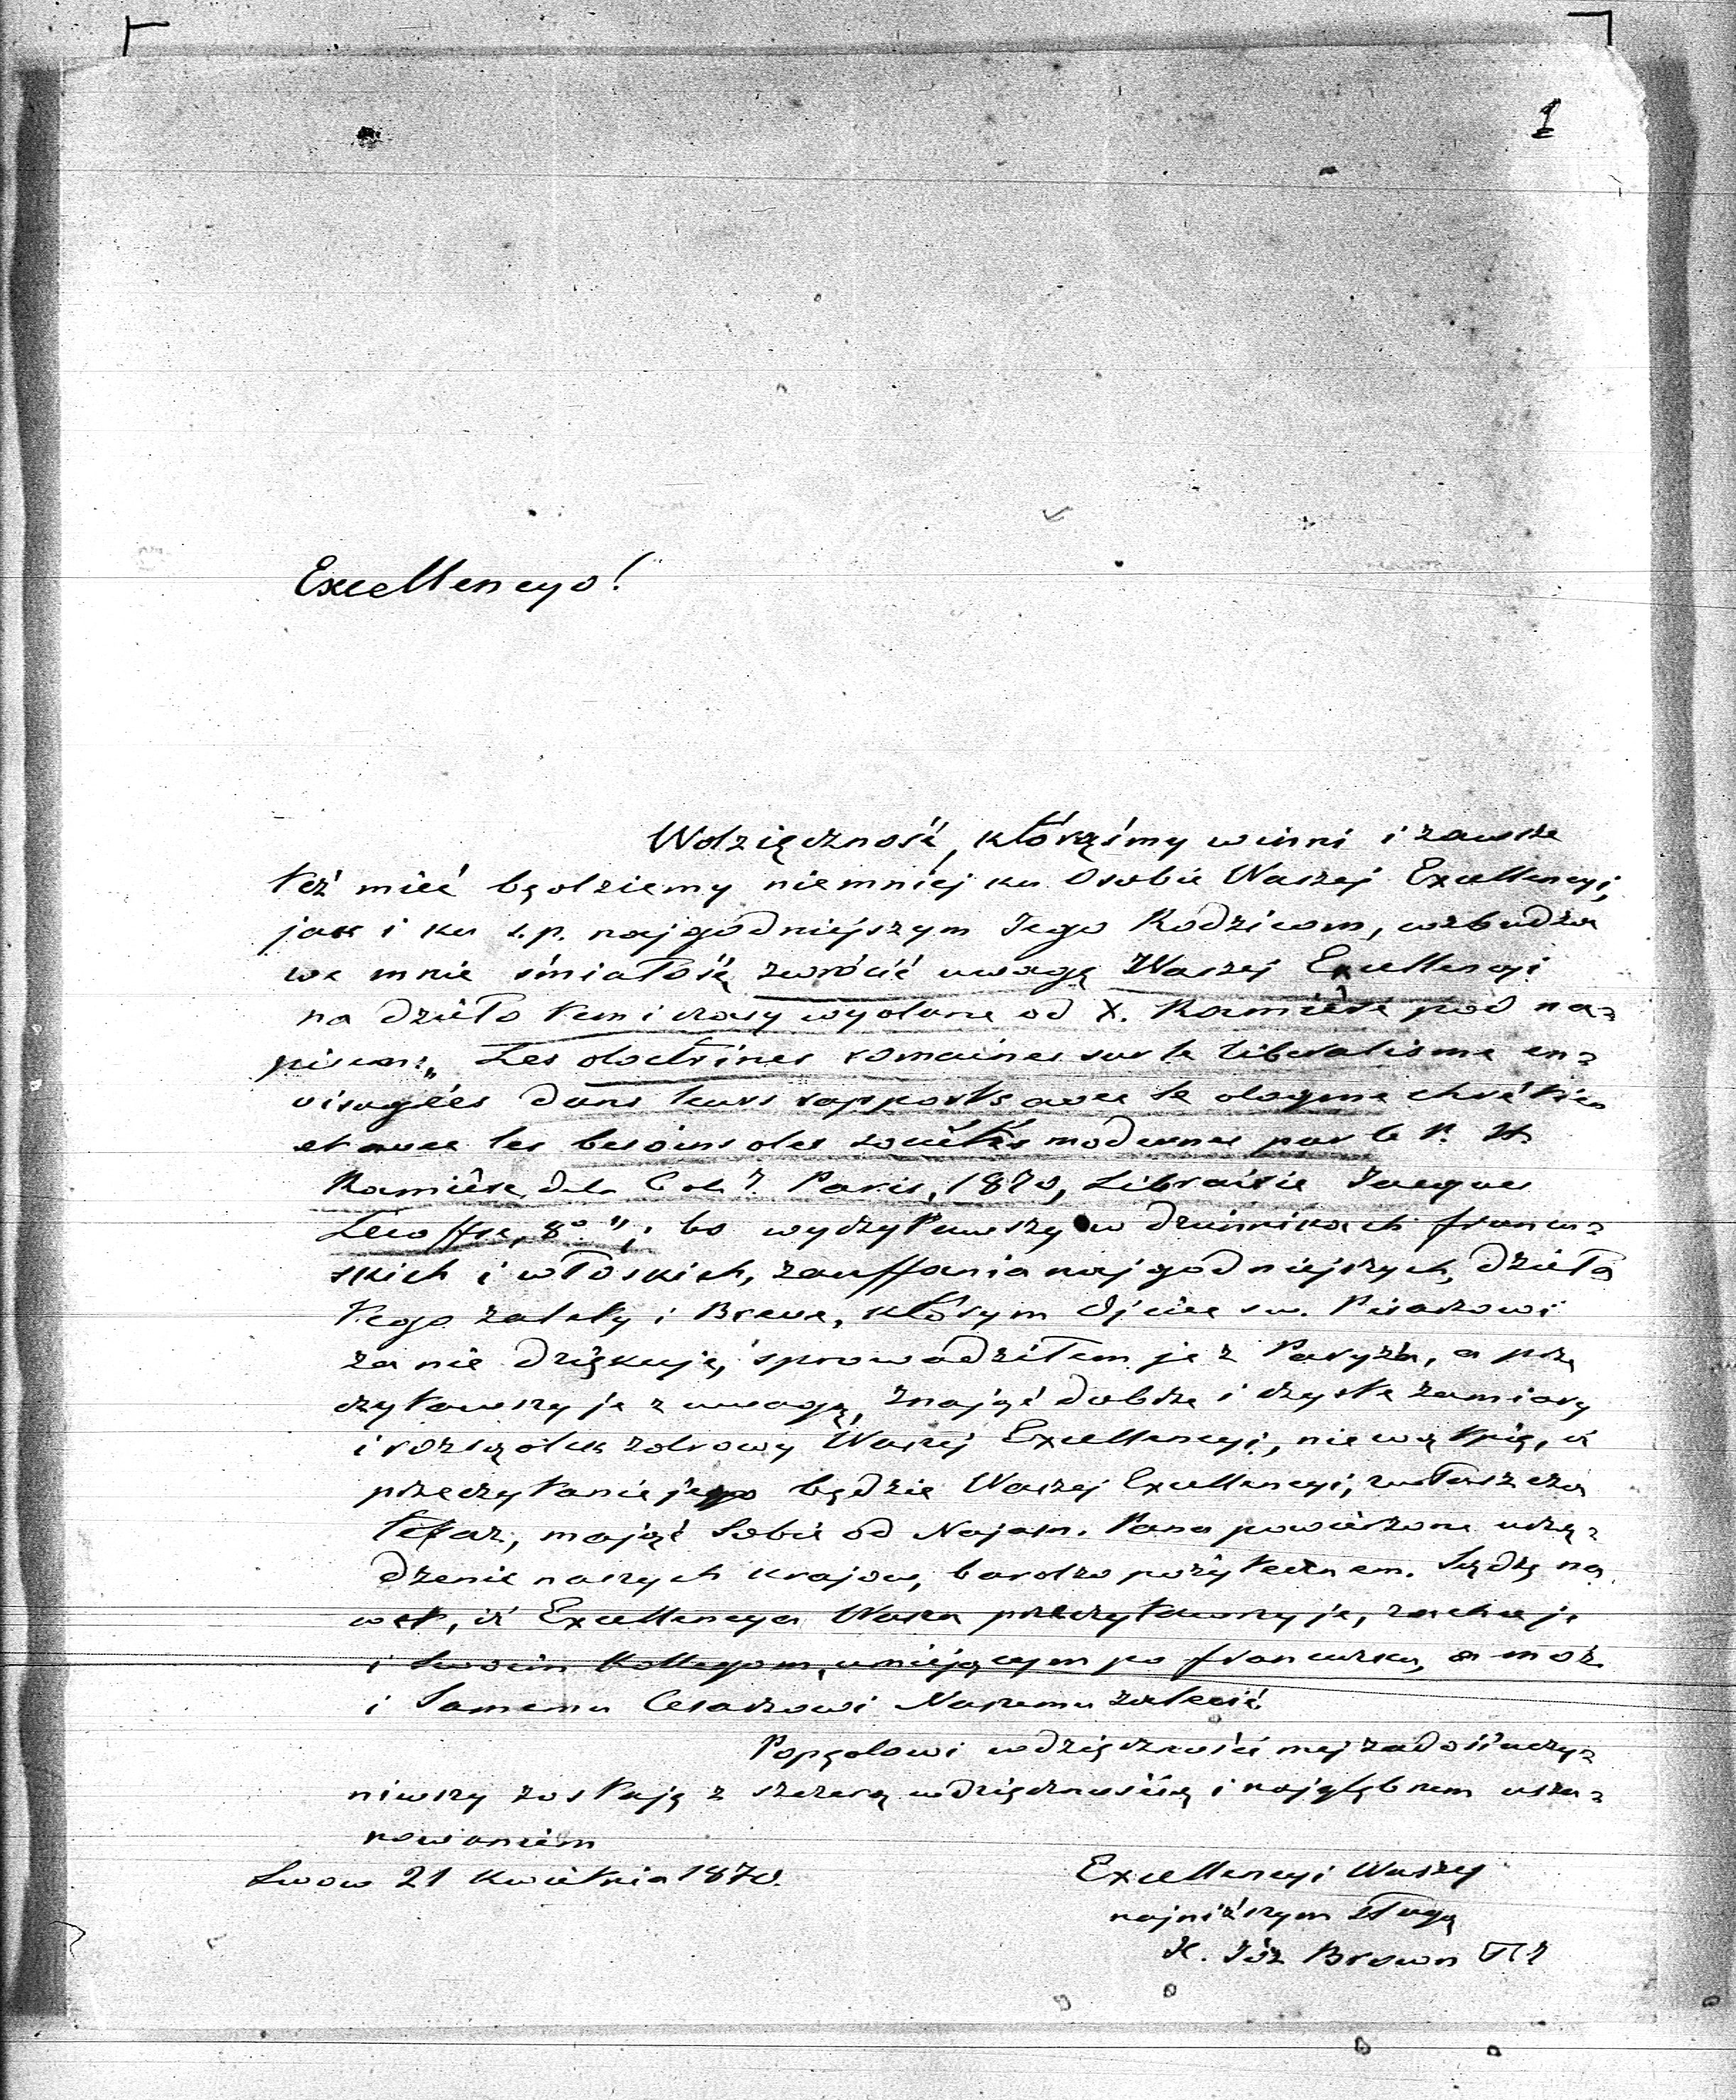 1
Excellencyo!
Wdzięczność, którąśmy winni i zawsze
też mieć będziemy niemniej ku Osobie Waszej Excellencyi,
jak i ku s.p. najgodniejszym Jego Rodzicom, wzbudza
we mnie śmiałość zwrócić uwagę Waszej Excellencyi
na dzieło temi czasy wydane od X. Ramière pod na-
pisem: „Les doctrines romaines sur le libéralisme en-
visagées dans leurs rapports avec le dogme chrétien
et avec les besoins des sociétés modernes par le P. H.
Ramière, de la C. de J. Paris, 1870, Librairie Jacques
Lecoffre, 8°"; bo wyczytawszy w dziennikach francu-
skich i włoskich, zauffania najgodniejszych, dzieła
tego zalety i Breve, którym Ojciec sw. Pisarzowi
za nie dziękuje, sprowadziłem je z Paryża, a prze
czytawszy je z uwagą, znając dobrze i czyste zamiary
i rozsądek zdrowy Waszej Excellencyi, nie wątpię, iż
przeczytanie jego będzie Waszej Excellencyi, zwłaszcza
teraz, mając Sobie od Najasn. Pana powierzone urzą-
dzenie naszych krajow, bardzo pożytecznem. Sądzę na
wet, iż Excellencya Wasza przeczytawszy je, zechce je
i Swoim Kollegom, umiejącym po francusku, a może
i Samemu Cesarzowi Naszemu zalecić.
Popędowi wdzięczności mej zadośćuczy-
niwszy zostaję z szczerą wdzięcznością i najgłębszem usza-
nowaniem
Lwow 21 Kwietnia 1870.
Excellencyi Waszej
najniższym sługą
X. Józ Brown TJ